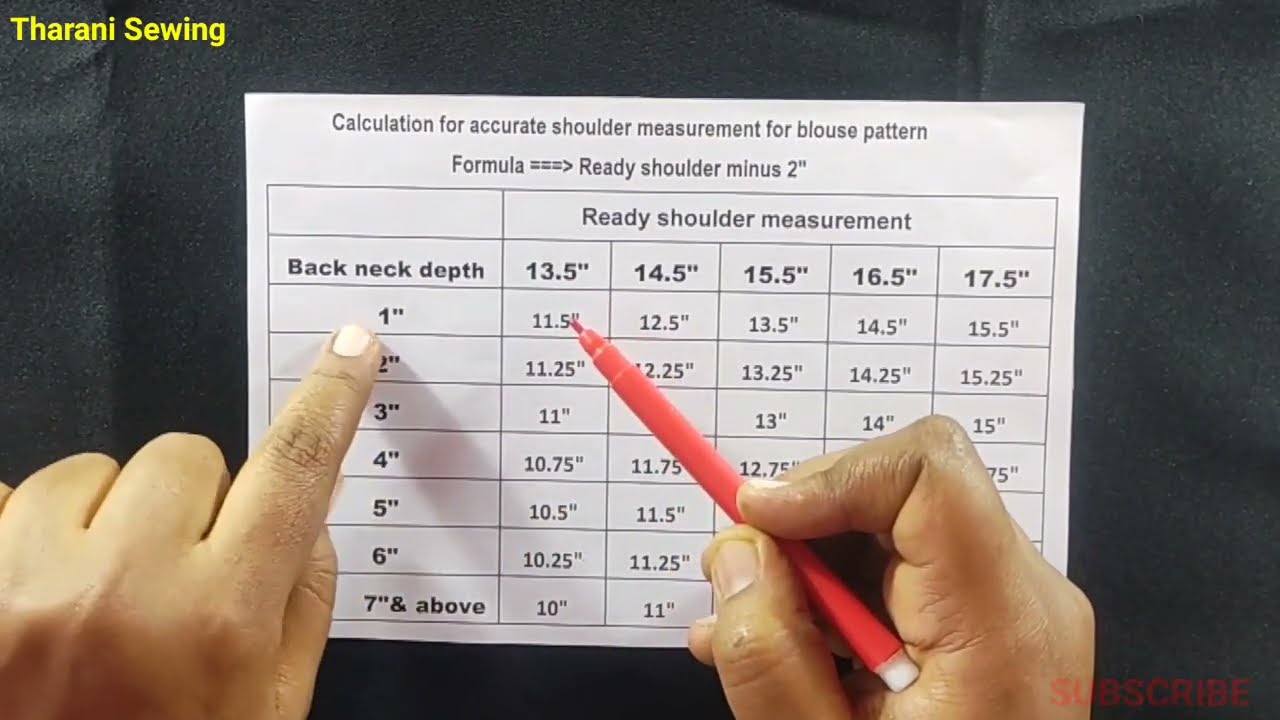 Tharani Sewing
Calculation for accurate shoulder measurement for blouse pattern
Formula ===> Ready shoulder minus 2"
Ready shoulder measurement
Back neck depth 13.5" 14.5" 15.5" 16.5" 17.5"
1" 11.5" 12.5" 13.5" 14.5" 15.5"
2" 11.25" 12.25" 13.25" 14.25" 15.25"
3" 11" 13" 14" 15"
4" 10.75" 11.75 12.75" 75"
5" 10.5" 11.5"
6" 10.25" 11.25"
7"& above 10" 11"
SUBSCRIBE